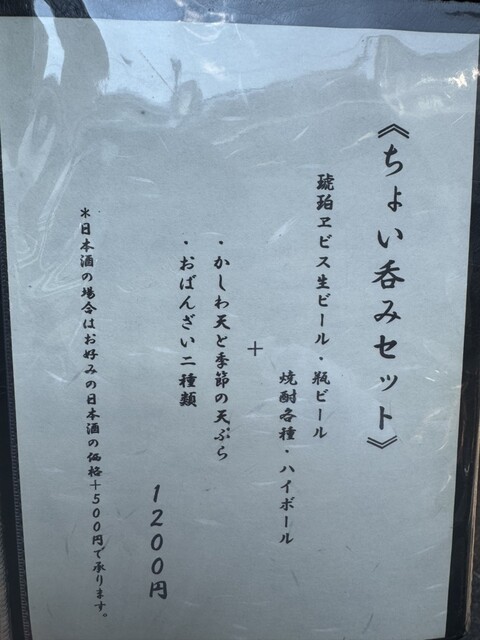 《ちょい呑みセット》
琥珀ヱビス生ビール・瓶ビール
焼酎各種・ハイボール
+
・かしわ天と季節の天ぷら
・おばんざい二種類
1200円
*日本酒の場合はお好みの日本酒の価格+500円で承ります。